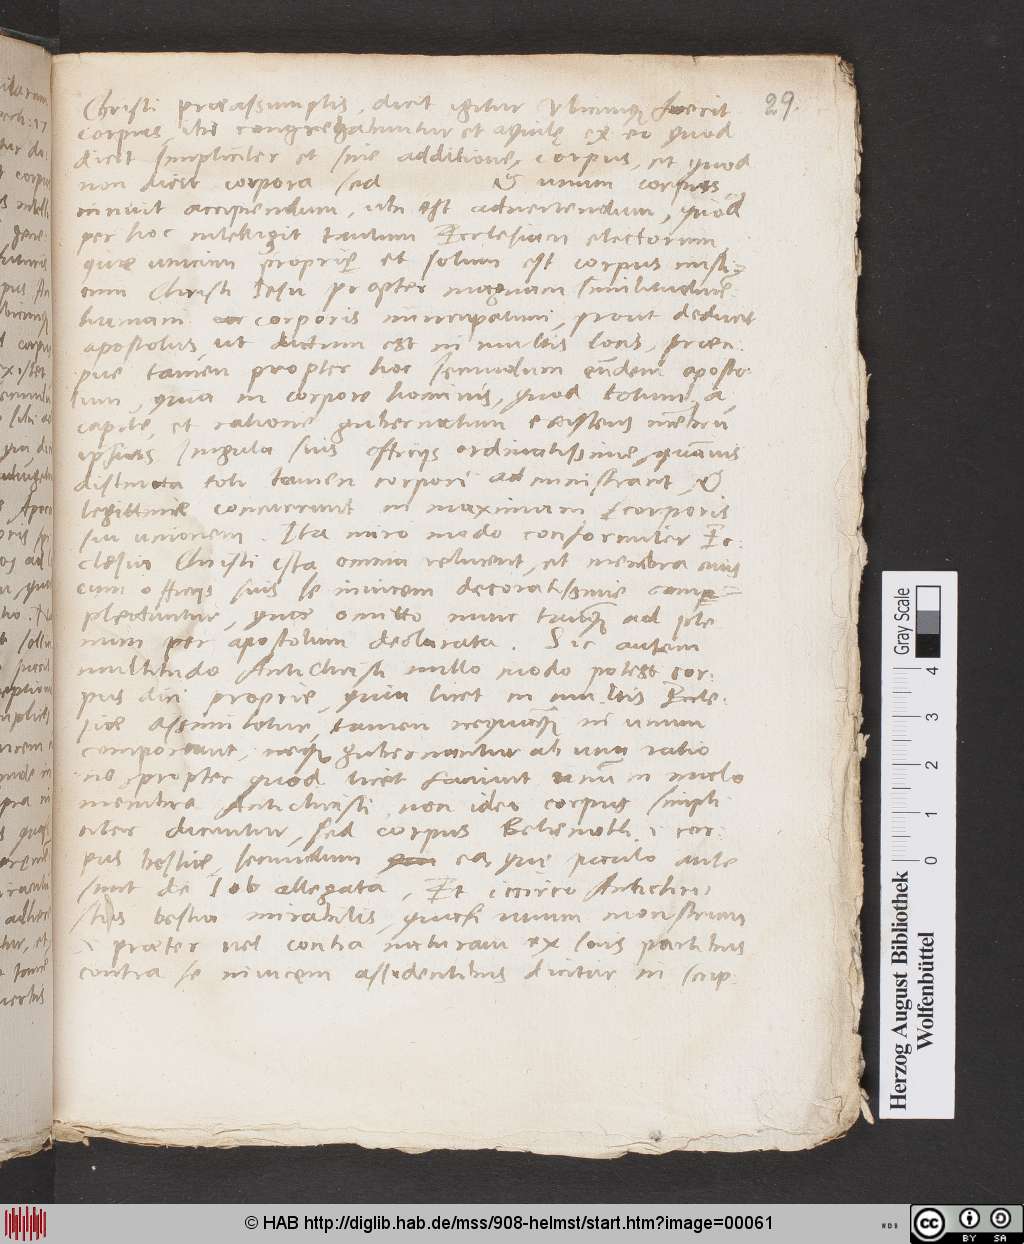 29.
Christi præassumptis, dicit igitur Vbicunq fuerit
corpus, ibi congregabuntur et aquilę, ex eo quod
dicit simpliciter et sine additione, corpus, et quod
non dicit corpora sed & unum corpus
innuit accipiendum, ubi est advertendum, quod
per hoc intelligit tantum Ecclesiam electorum
quæ unicum proprie et solum est corpus misti-
cum Christi Iesu propter magnam similitudinē
humani corporis nuncupatum, prout deducit
apostolus, ut dictum est in multis locis, præci
pue tamen propter hoc secundum eundem aposto
lum, quia in corpore hominis, quod totum, a
capite, et ratione gubernatum existens mēbrū
ipsius singula suis officijs ordinatissime, quāvis
distincta toti tamen corpori administrant, &
legittime concurrunt in maximam corporis
sui unionem. Ita miro modo conformiter Ec-
clesiæ Christi ista omnia relucent, et membra eius
cum officijs suis se invicem decoratissime comp
plectuntur, quæ omitto nunc tanq ad ple
num per apostolum declarata. Sic autem
multitudo Antichristi nullo modo potest cor-
pus dici proprie, quia licet in multis Eccle-
siæ assimiletur, tamen nequaq in unum
comporeant, neq gubernantur ab una ratio
ne, propter quod licet faciunt unū in malo
membra Antichristi, non ideo corpus simpli
citer dicuntur, sed corpus Behemoth .i. cor-
pus bestiæ, secundum ea, quę paulo ante
sunt de Iob allegata, Et iccirco Antichri
stus bestia mirabilis, quasi unum monstrum
præter vel contra naturam ex suis partibus
contra se invicem assidentibus dicitur in scrip-
Gray Scale
0 1 2 3 4
Herzog August Bibliothek
Wolfenbüttel
© HAB http://diglib.hab.de/mss/908-helmst/start.htm?image=00061
WDB
cc BY SA